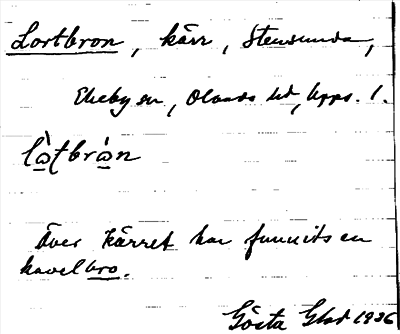 Lortbron, kärr, Stensunda,
Ekeby sn, Olands hd, Upps. l.
lὼtbrώn
Över kärret har funnits en
kavelbro.
Gösta Glad 1936